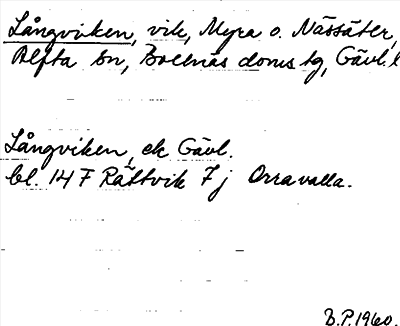 Långviken, vik, Myra o. Nässäter,
Alfta sn, Bollnäs doms tg, Gävl. l
Långviken, ek Gävl.
bl. 14 F Rättvik 7 j Orravalla.
B.P. 1960.